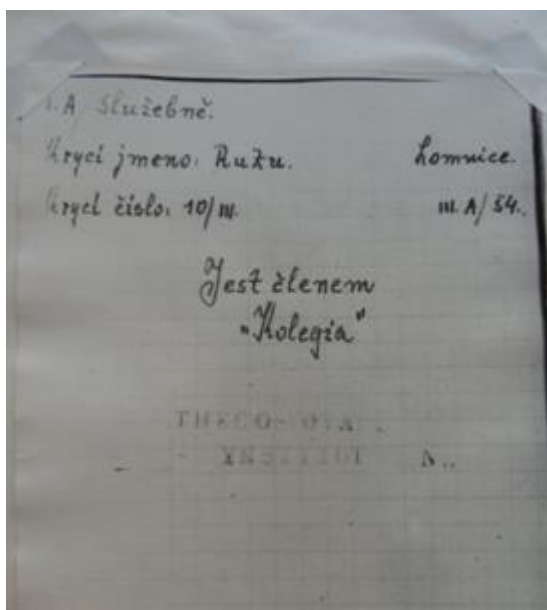 I.A Služebně.
Krycí jmeno: Ružu. Lomnice.
Krycí číslo: 10/III. III.A/54.
Jest členem
"Kolegia"
THECO